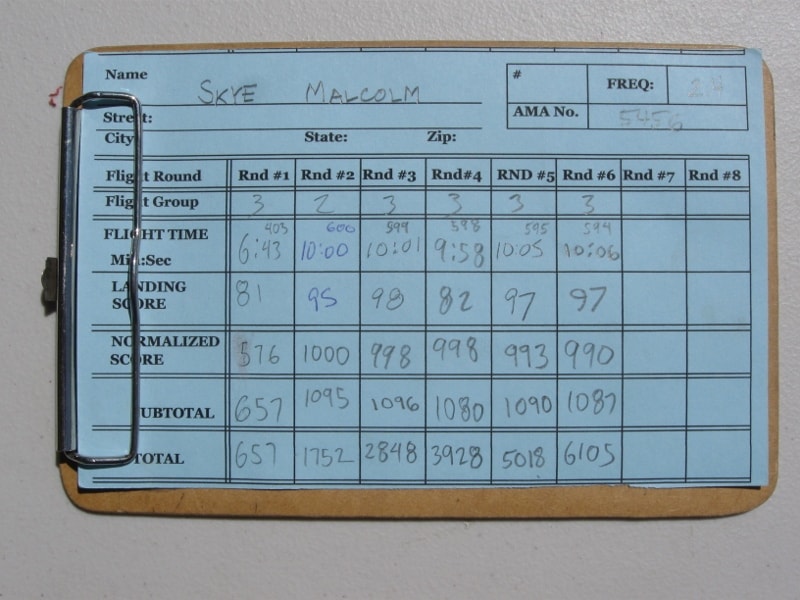 Name SKYE MALCOLM # FREQ: 24
AMA No. 5456
Street:
City: State: Zip:
Flight Round Rnd #1 Rnd #2 Rnd #3 Rnd#4 RND #5 Rnd #6 Rnd #7 Rnd #8
Flight Group 3 2 3 3 3 3
403 600 599 598 595 594
FLIGHT TIME
Min:Sec 6:43 10:00 10:01 9:58 10:05 10:06
LANDING
SCORE 81 95 98 82 97 97
NORMALIZED
SCORE 576 1000 998 998 993 990
SUBTOTAL 657 1095 1096 1080 1090 1087
TOTAL 657 1752 2848 3928 5018 6105